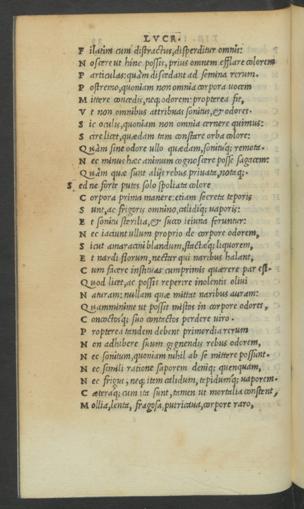 LVCR.
F ilatim cum distractus, disperditur omnis:
N oscere ut hinc possis, prius omnem efflare colorem
P articulas: quàm discedant ad semina rerum.
P ostremo, quoniam non omnia corpora uocem
M ittere concedis, neq; odorem: propterea fit,
V t non omnibus attribuas sonitus, & odores.
S ic oculis, quoniam non omnia cernere quimus:
S cire licet, quædam tam constare orba colore:
Quàm sine odore ullo quædam, sonituq; remota.
N ec minus hæc animum cognoscere posse sagacem:
Quàm quæ sunt alijs rebus priuata, notaq;.
S ed ne forte putes solo spoliata colore
C orpora prima manere: etiam secreta teporis
S unt, ac frigoris omnino, calidiq; uaporis:
E t sonitu sterilia, & succo ieiuna feruntur:
N ec iaciunt ullum proprio de corpore odorem,
S icut amaracini blandum, stactæq; liquorem,
E t nardi florum, nectar qui naribus halant,
C um facere instituas cumprimis quærere par est.
Quod licet, ac possit reperire inolentis oliui
N aturam: nullam quæ mittat naribus auram:
Quamminime ut possit mistos in corpore odores,
C oncoctosq; suo contectos perdere uiro.
P ropterea tandem debent primordia rerum
N on adhibere suum gignendis rebus odorem,
N ec sonitum, quoniam nihil ab se mittere possunt.
N ec simili ratione saporem deniq; quenquam,
N ec frigus, neq; item calidum, tepidumq; uaporem.
C æteraq; cum ita sunt, tamen ut mortalia constent,
M ollia, lenta, fragosa, putri, caua, corpore raro,